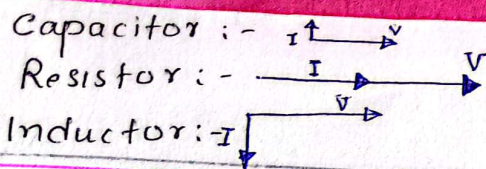 Capacitor :- I V
Resistor :- I V
Inductor :- I V